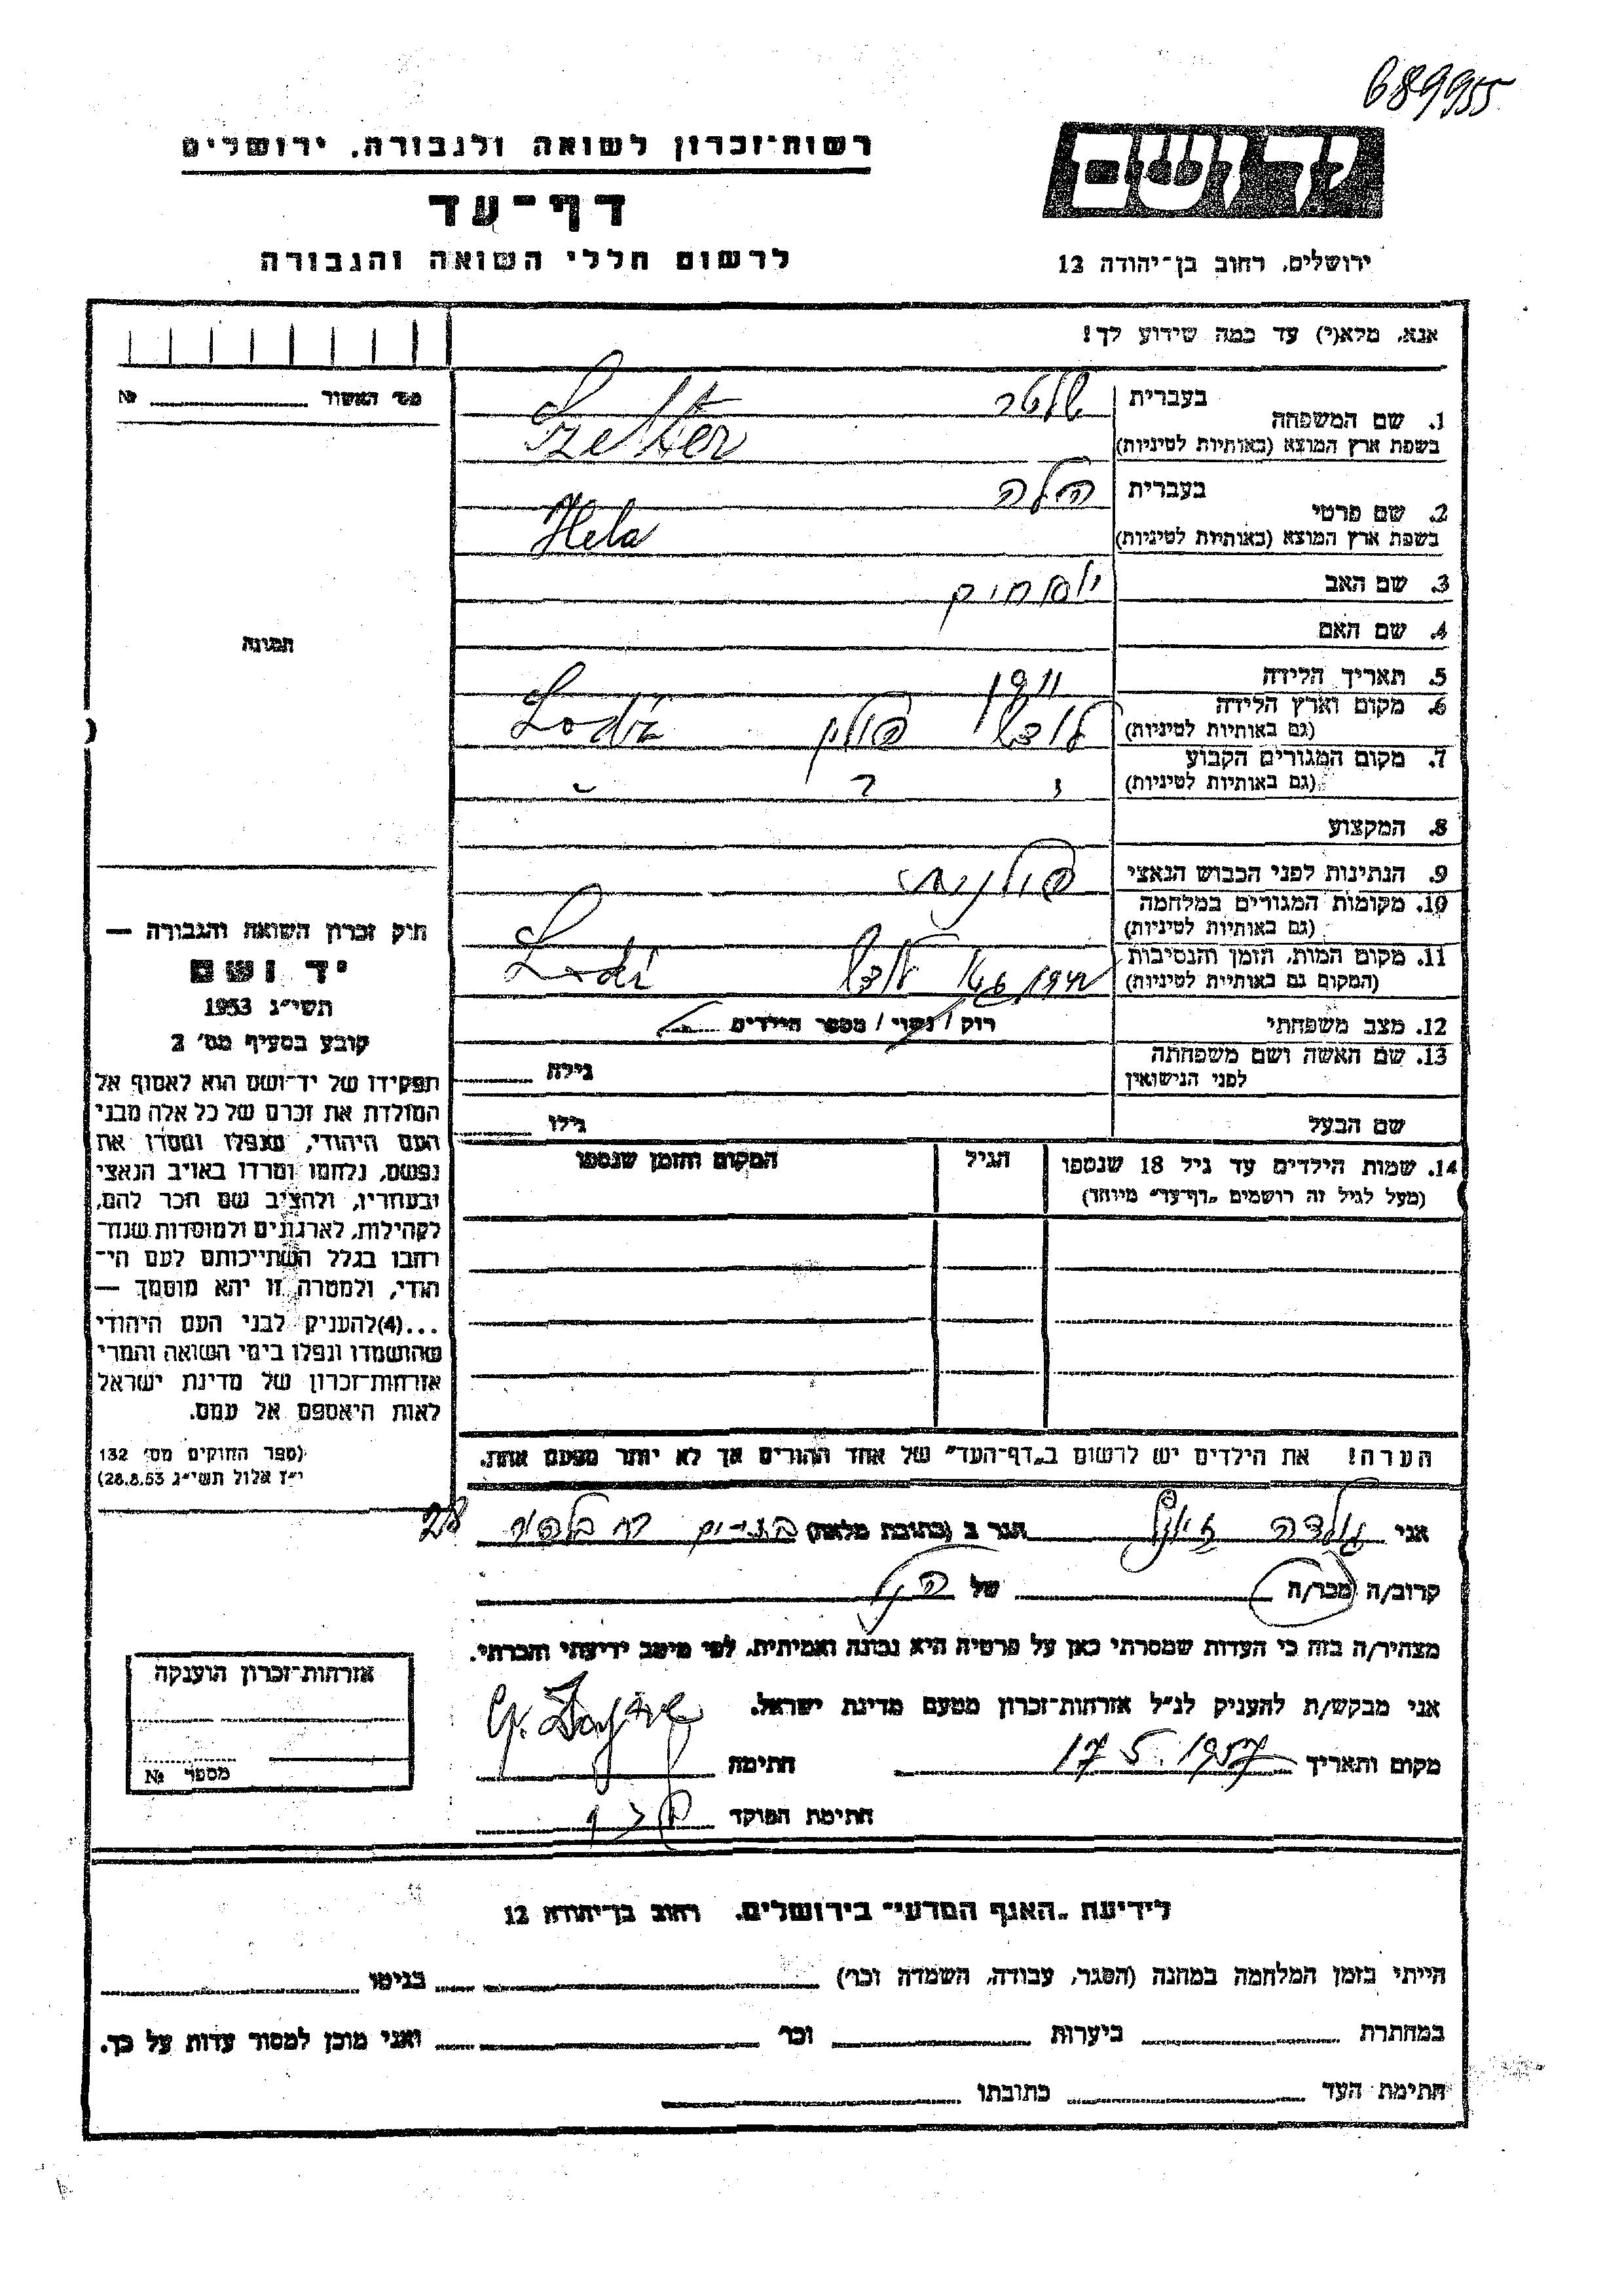 689955
יד ושם
רשות־זכרון לשואה ולגבורה, ירושלים
דף־עד
ירושלים, רחוב בן־יהודה 12
לרשום חללי השואה והגבורה
אנא, מלא(י) עד כמה שידוע לך!
מס׳ האשור № 
1. שם המשפחה
בעברית
שלטר
בשפת ארץ המוצא (באותיות לטיניות)
Szelter
2. שם פרטי
בעברית
הלה
בשפת ארץ המוצא (באותיות לטיניות)
Hela
3. שם האב
4. שם האם
5. תאריך הלידה 1911
6. מקום וארץ הלידה
(גם באותיות לטיניות)
לודז׳ פולין Lodź
7. מקום המגורים הקבוע
(גם באותיות לטיניות)
8. המקצוע
9. הנתינות לפני הכבוש הנאצי פולנית
10. מקומות המגורים במלחמה
(גם באותיות לטיניות)
11. מקום המות, הזמן והנסיבות
(המקום גם באותיית לטיניות)
לודז׳ Lodź
12. מצב משפחתי רוק / נשוי / מספר הילדים
13. שם האשה ושם משפחתה
לפני הנישואין
גילה
שם הבעל גילו
14. שמות הילדים עד גיל 18 שנספו
(מעל לגיל זה רושמים „דף־עד״ מיוחד)
הגיל
המקום והזמן שנספו
תמונה
חוק זכרון השואה והגבורה —
יד ושם
תשי״ג 1953
קובע בסעיף מס׳ 2
תפקידו של יד־ושם הוא לאסוף אל
המולדת את זכרם של כל אלה מבני
העם היהודי, שנפלו ומסרו את
נפשם, נלחמו ומרדו באויב הנאצי
ובעוזריו, ולהציב שם וזכר להם,
לקהילות, לארגונים ולמוסדות שנח־
רחבו בגלל השתייכותם לעם הי־
הודי, ולמטרה זו יהא מוסמך —
...(4)להעניק לבני העם היהודי
שהושמדו ונפלו בימי השואה והמרי
אזרחות־זכרון של מדינת ישראל
לאות היאספם אל עמם.
(ספר החוקים מס׳ 132
י״ז אלול תשי״ג 28.8.53)
הערה! את הילדים יש לרשום ב„דף־העד״ של אחד ההורים אך לא יותר מפעם אחת.
אני גולדה הגר ב (כתובת מלאה) 28
קרוב/ה מכר/ה של
מצהיר/ה בזה כי העדות שמסרתי כאן על פרטיה היא נכונה ואמיתית, לפי מיטב ידיעתי והכרתי.
אני מבקש/ת להעניק לנ״ל אזרחות־זכרון מטעם מדינת ישראל.
מקום ותאריך 17.5.1957 חתימה
חתימת הפוקד
אזרחות־זכרון הוענקה
מספר №
לידיעת „האגף המדעי״ בירושלים, רחוב בן־יהודה 12
הייתי בזמן המלחמה במחנה (הסגר, עבודה, השמדה וכר׳) בגיטו
במחתרת ביערות וכר׳ ואני מוכן למסור עדות על כך.
חתימת העד כתובתו